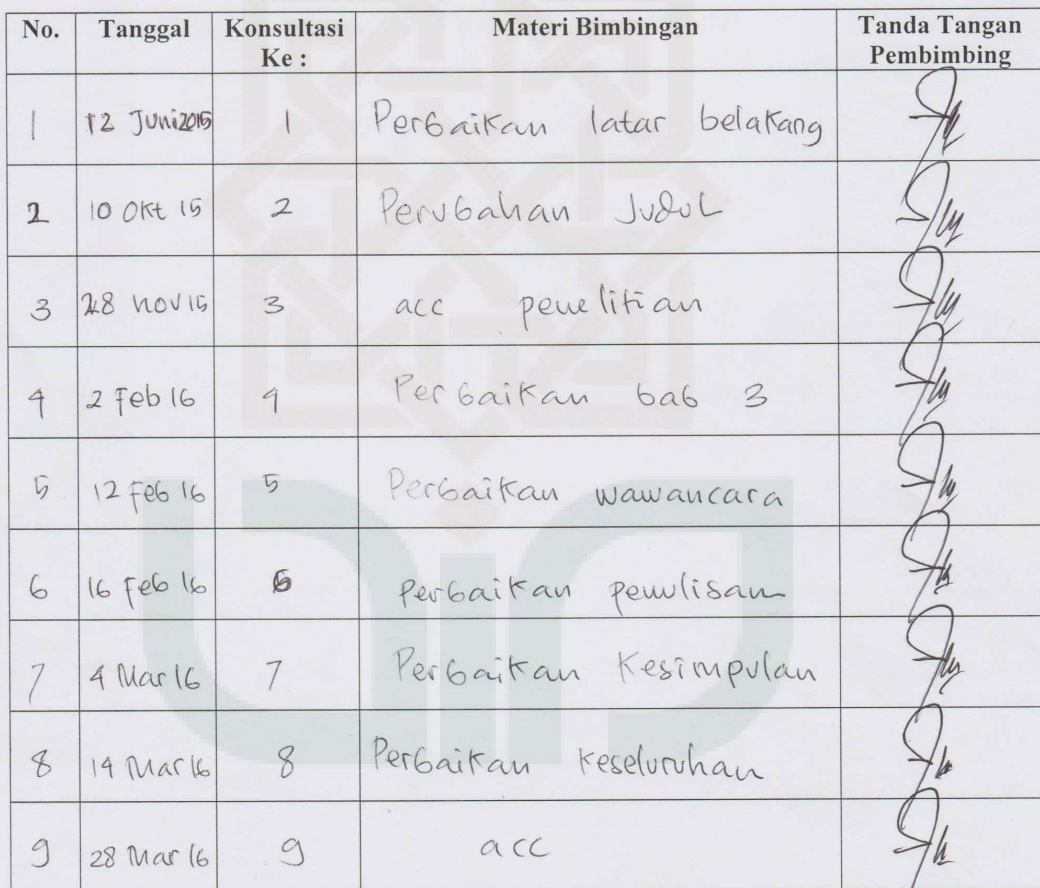 No. Tanggal Konsultasi Ke : Materi Bimbingan Tanda Tangan Pembimbing
1 12 Juni 2015 1 Perbaikan latar belakang
2 10 Okt 15 2 Perubahan Judul
3 28 nov 15 3 acc penelitian
4 2 Feb 16 4 Perbaikan bab 3
5 12 Feb 16 5 Perbaikan wawancara
6 16 Feb 16 6 Perbaikan penulisan
7 4 Mar 16 7 Perbaikan Kesimpulan
8 14 Mar 16 8 Perbaikan keseluruhan
9 28 Mar 16 9 acc